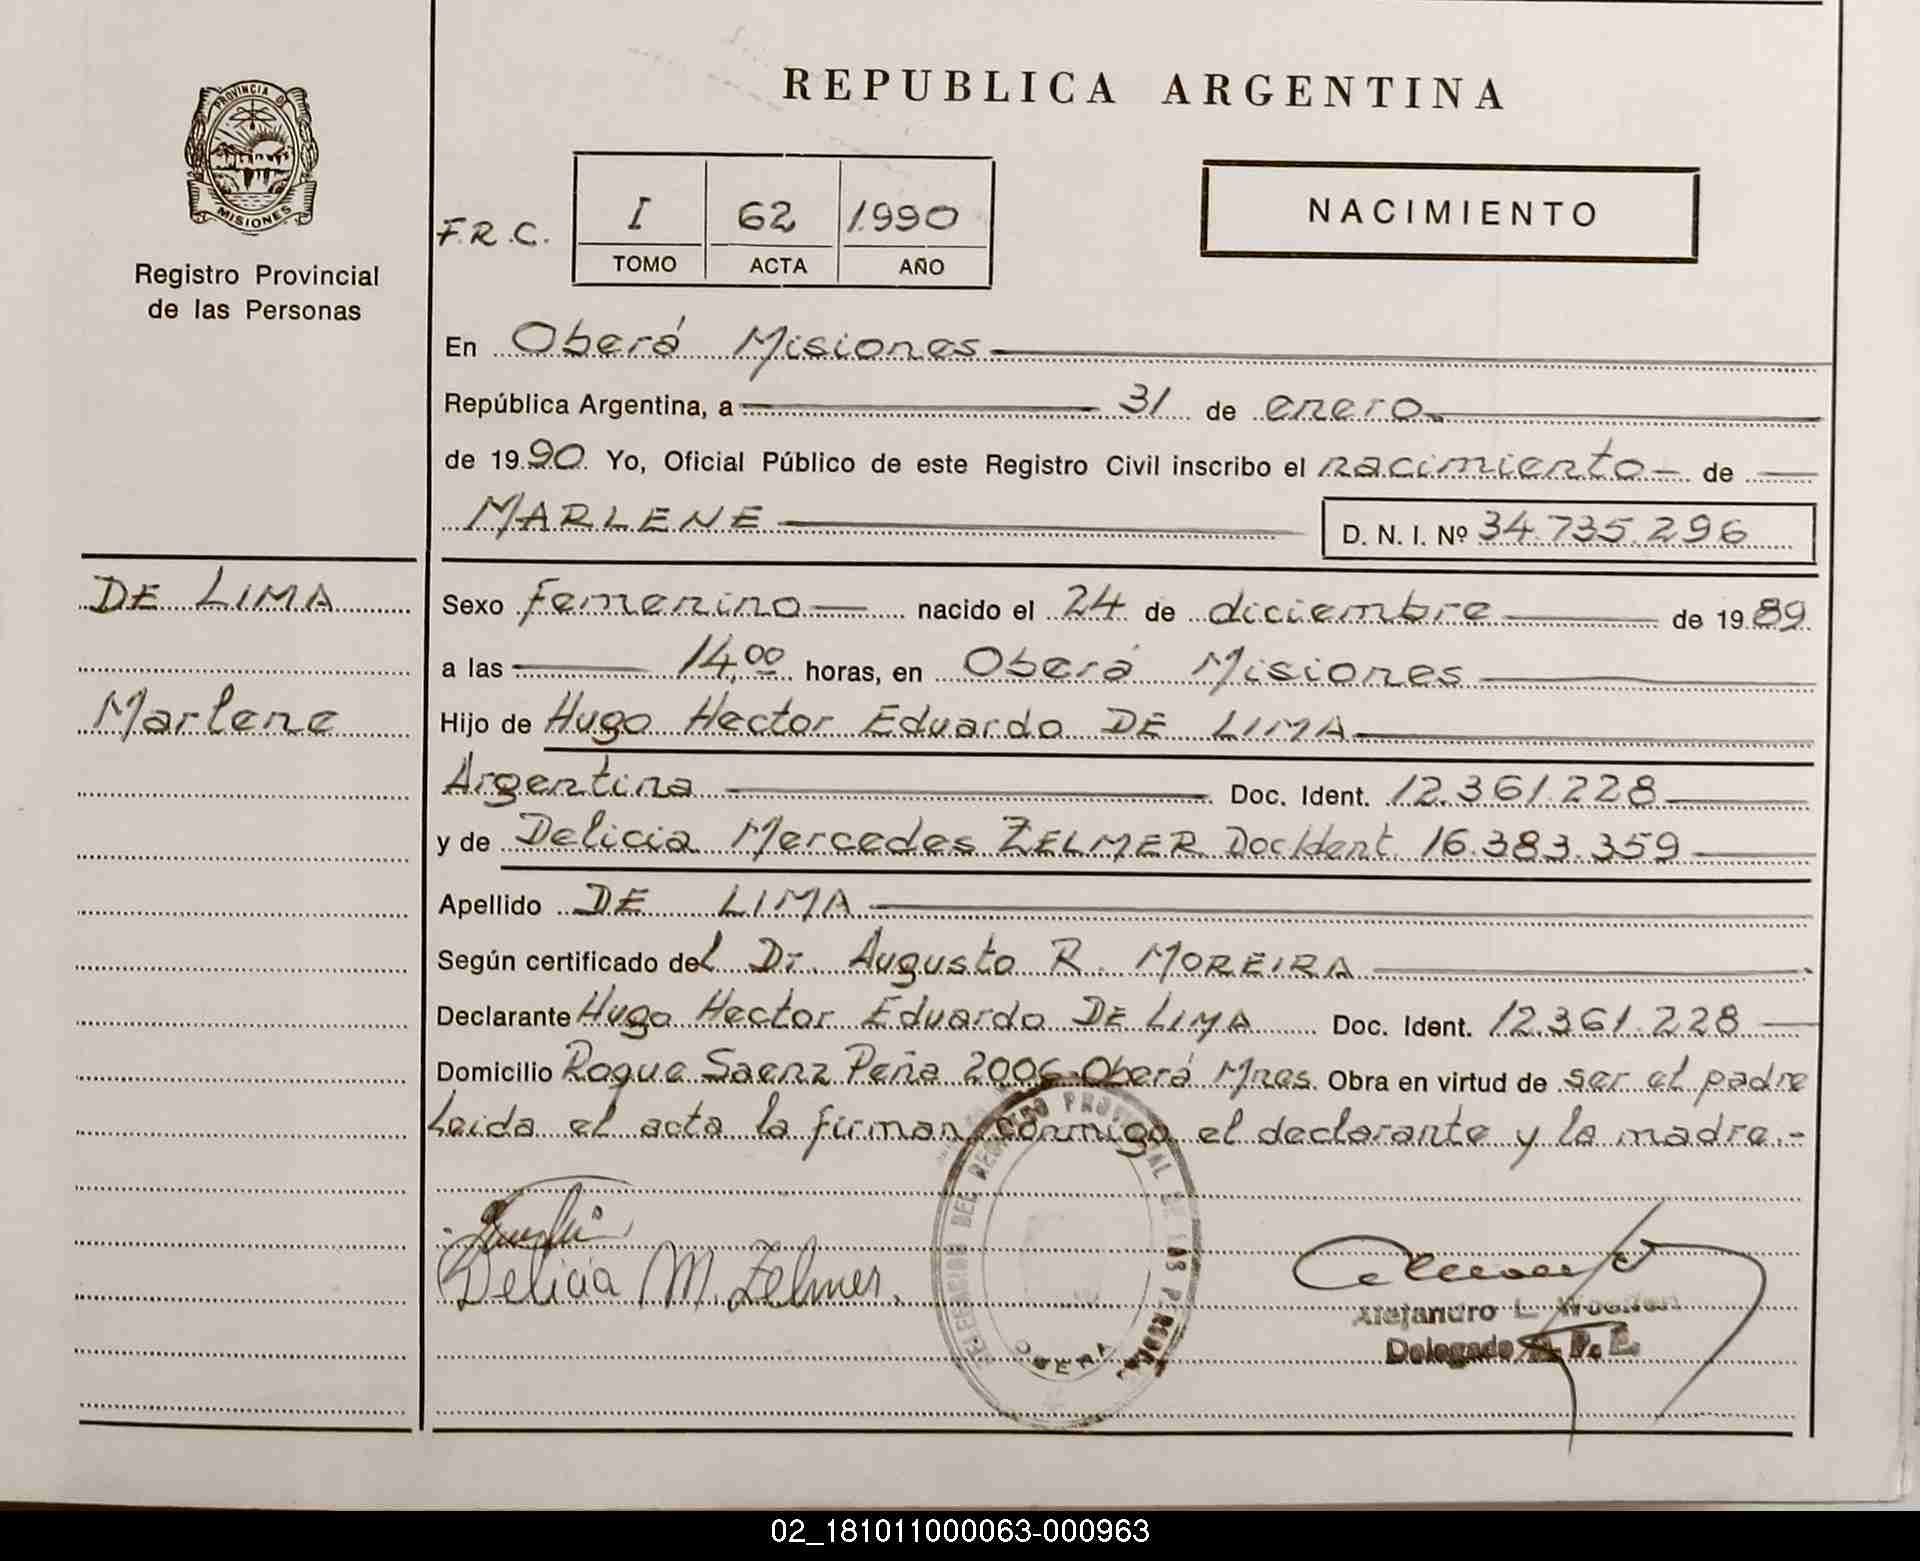 PROVINCIA DE
MISIONES
Registro Provincial
de las Personas
DE LIMA
Marlene
REPUBLICA ARGENTINA
F.R.C.
I 62 1.990
TOMO ACTA AÑO
NACIMIENTO
En Oberá Misiones
República Argentina, a 31 de enero
de 1990. Yo, Oficial Público de este Registro Civil inscribo el nacimiento de
MARLENE D. N. I. Nº 34.735.296
Sexo femenino nacido el 24 de diciembre de 1989
a las 14,00 horas, en Oberá Misiones
Hijo de Hugo Hector Eduardo DE LIMA
Argentina Doc. Ident. 12.361.228
y de Delicia Mercedes ZELMER Doc Ident. 16.383.359
Apellido DE LIMA
Según certificado del Dr. Augusto R. MOREIRA
Declarante Hugo Hector Eduardo DE LIMA Doc. Ident. 12.361.228
Domicilio Roque Saenz Peña 2006 Oberá Mnes. Obra en virtud de ser el padre
Leida el acta la firman conmigo el declarante y la madre.-
Delicia M. Zelmer.
DELEGACION DEL REGISTRO PROVINCIAL DE LAS PERSONAS
OBERA
Alejandro L.
Delegado R. P. E.
02_181011000063-000963